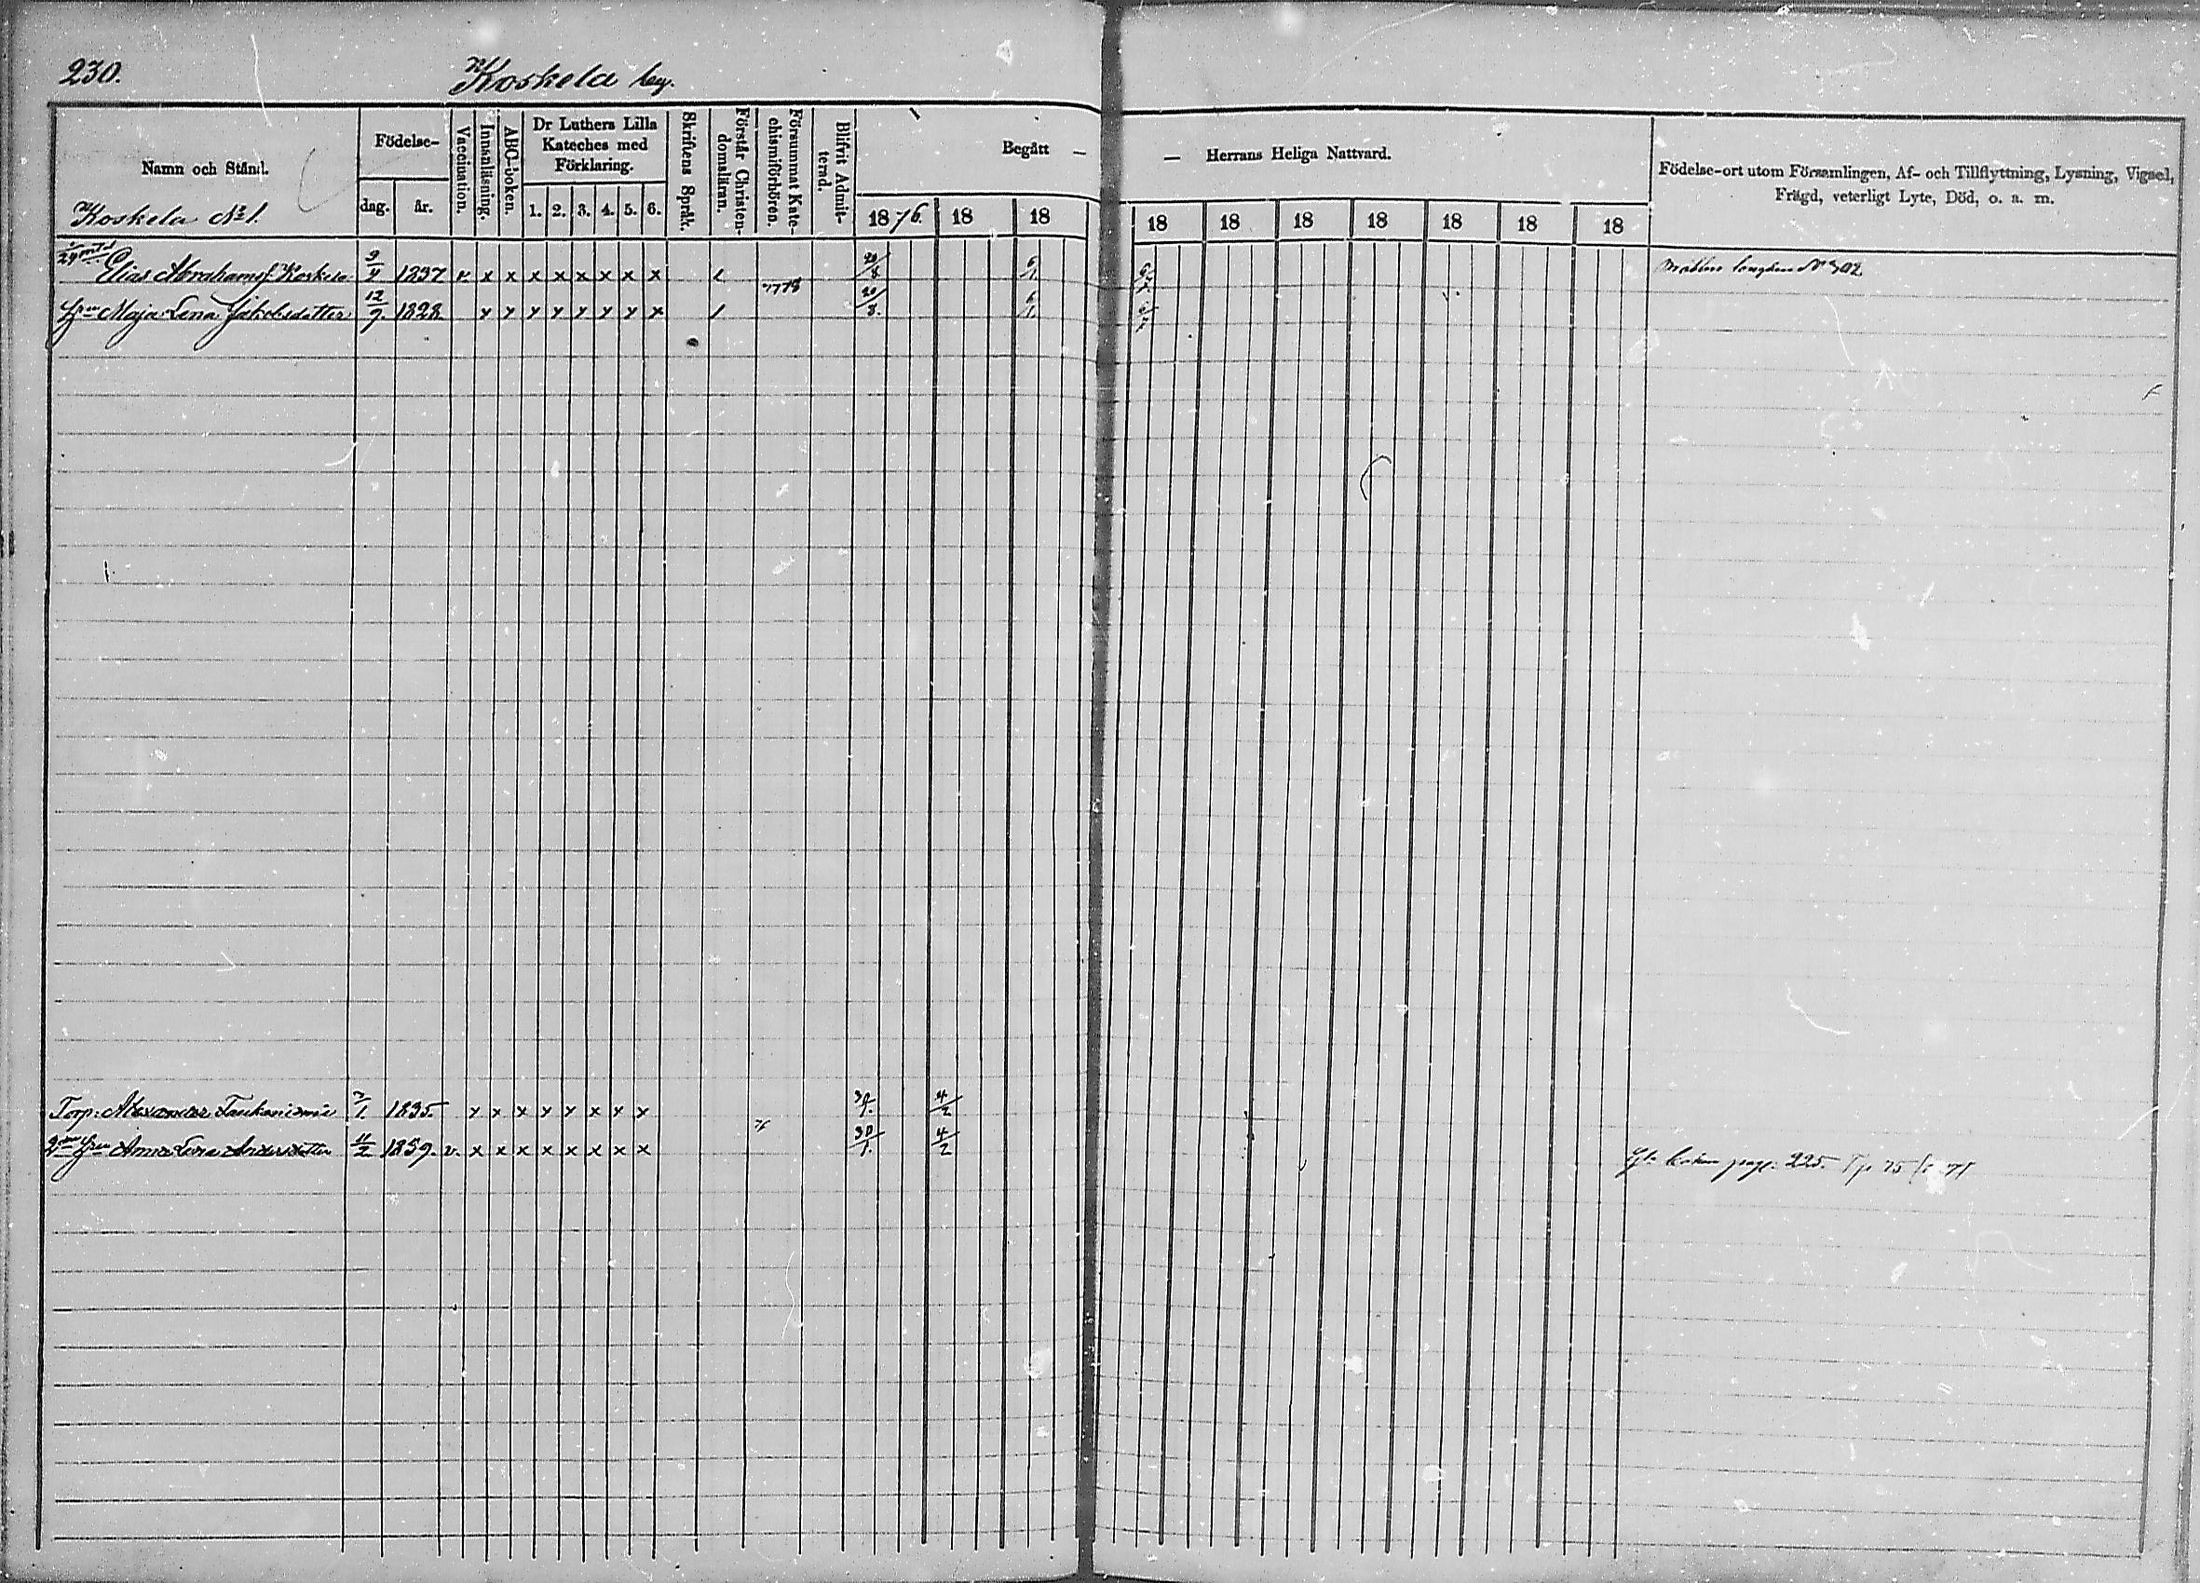 230.
Koskela by.
Namn och Stånd.
Födelse-
dag.
år.
Vaccination.
Innanläsning.
ABC-boken.
Dr Luthers Lilla
Kateches med
Förklaring.
1. 2. 3. 4. 5. 6.
Skriftens Språk.
Förstår Christen-
domsläran.
Försummat Kate-
chismiförhören.
Blifvit Admit-
terad.
Begått —
— Herrans Heliga Nattvard.
1876. 18 18 18 18 18 18 18 18 18
Födelse-ort utom Församlingen, Af- och Tillflyttning, Lysning, Vigsel,
Frägd, veterligt Lyte, Död, o. a. m.
Koskela № 1.
Elias Abrahamsf. Koskela 9/4 1837 v. x x x x x x x x 20/8 6/1
Hru Maja Lena Jakobsdotter 12/9. 1828 x x x x x x x x 20/8. 6/1
Torp. Alexander 1835 x x x x x x x x 4/2
2dra Hru Anna Lena Andersdotter 11/2 1859. v. x x x x x x x x 30/1. 4/2
pag: 225.